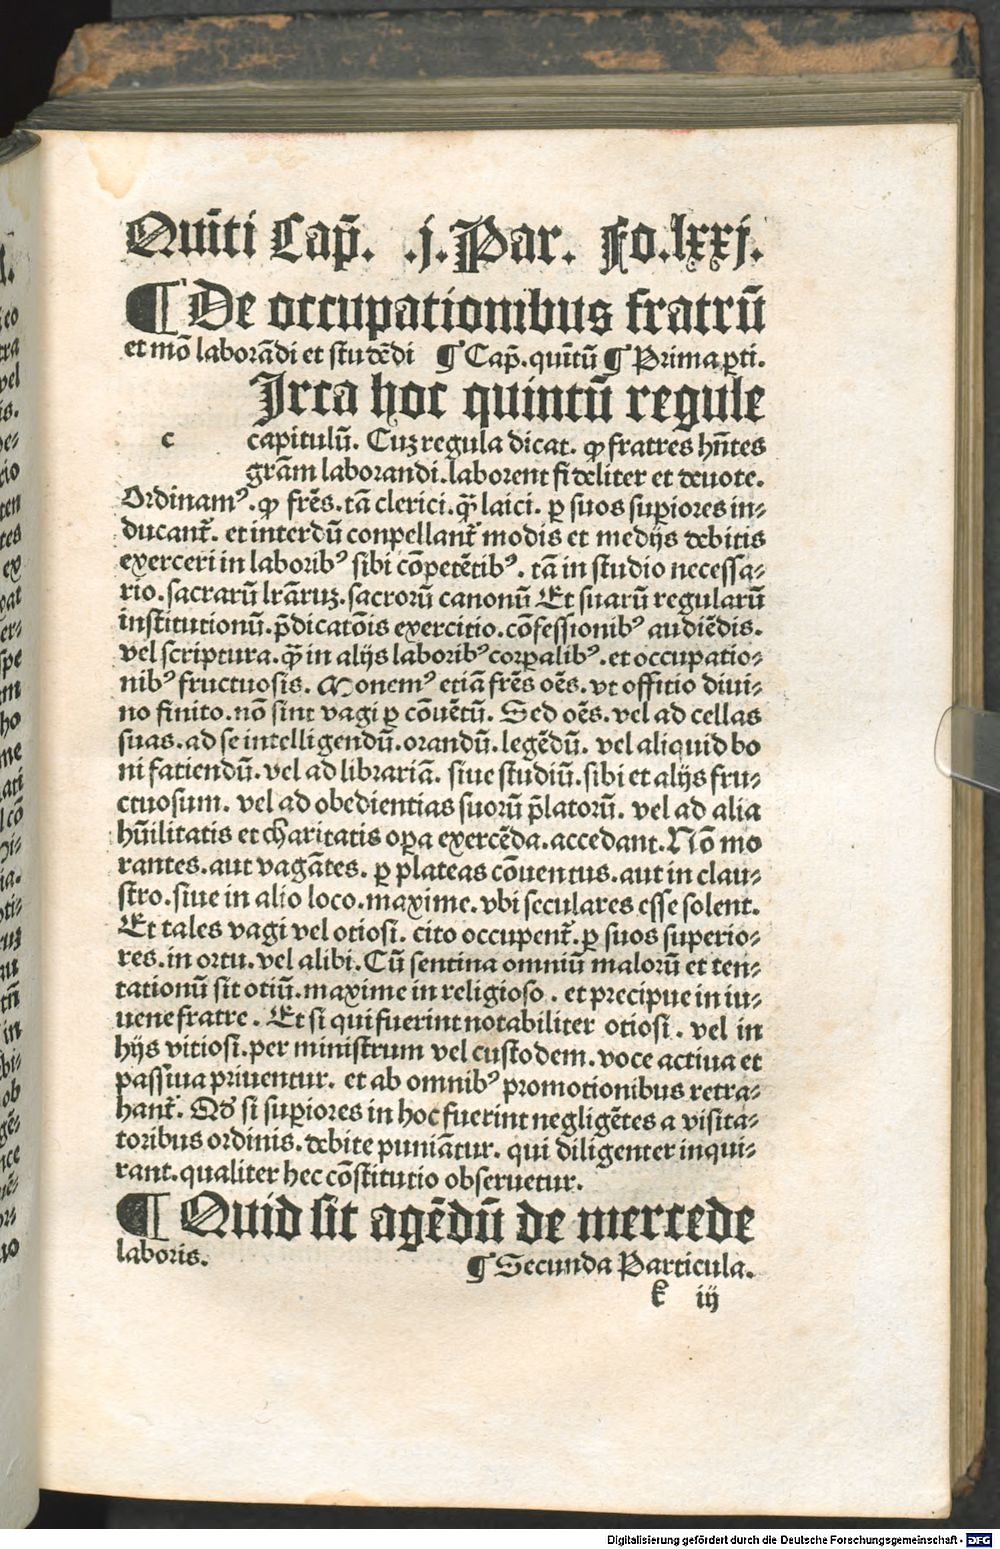 Quīti Cap̄. .j. Par. Fo.lxxj.
¶ De occupationibus fratrū
et mō laborādi et studēdi ¶ Cap̄. quītū ¶ Prima ꝑti.
Irca hoc quintū regule
c capitulū. Cuꝫ regula dicat. ꝙ fratres hn̄tes
grām laborandi. laborent fideliter et deuote.
Ordinamꝰ. ꝙ frēs. tā clerici. q̄ȝ laici. ꝑ suos suꝑiores in⸗
ducant᷑. et interdū conpellant᷑ modis et medijs debitis
exerceri in laboribꝰ sibi cōpetētibꝰ. tā in studio necessa⸗
rio. sacrarū lr̄aruꝫ. sacrorū canonū Et suarū regularū
institutionū. p̄dicatōis exercitio. cōfessionibꝰ audiēdis.
vel scriptura. q̄ȝ in alijs laboribꝰ corꝑalibꝰ. et occupatio⸗
nibꝰ fructuosis. Monemꝰ etiā frēs oēs. vt offitio diui⸗
no finito. nō sint vagi ꝑ cōuētū. Sed oēs. vel ad cellas
suas. ad se intelligendū. orandū. legēdū. vel aliquid bo
ni fatiendū. vel ad librariā. siue studiū. sibi et alijs fru⸗
ctuosum. vel ad obedientias suorū p̄latorū. vel ad alia
hūilitatis et charitatis oꝑa exercēda. accedant. Nō mo
rantes. aut vagātes. ꝑ plateas cōuentus. aut in clau⸗
stro. siue in alio loco. maxime. vbi seculares esse solent.
Et tales vagi vel otiosi. cito occupent᷑. ꝑ suos superio⸗
res. in ortu. vel alibi. Cū sentina omniū malorū et ten⸗
tationū sit otiū. maxime in religioso. et precipue in iu⸗
uene fratre. Et si qui fuerint notabiliter otiosi. vel in
hijs vitiosi. per ministrum vel custodem. voce actiua et
passiua priuentur. et ab omnibꝰ promotionibus retra⸗
hant᷑. Qď si suꝑiores in hoc fuerint negligētes a visita⸗
toribus ordinis. debite puniātur. qui diligenter inqui⸗
rant. qualiter hec cōstitutio obseruetur.
¶ Quid sit agēdū de mercede
laboris. ¶ Secunda Particula.
k iij
Digitalisierung gefördert durch die Deutsche Forschungsgemeinschaft - DFG